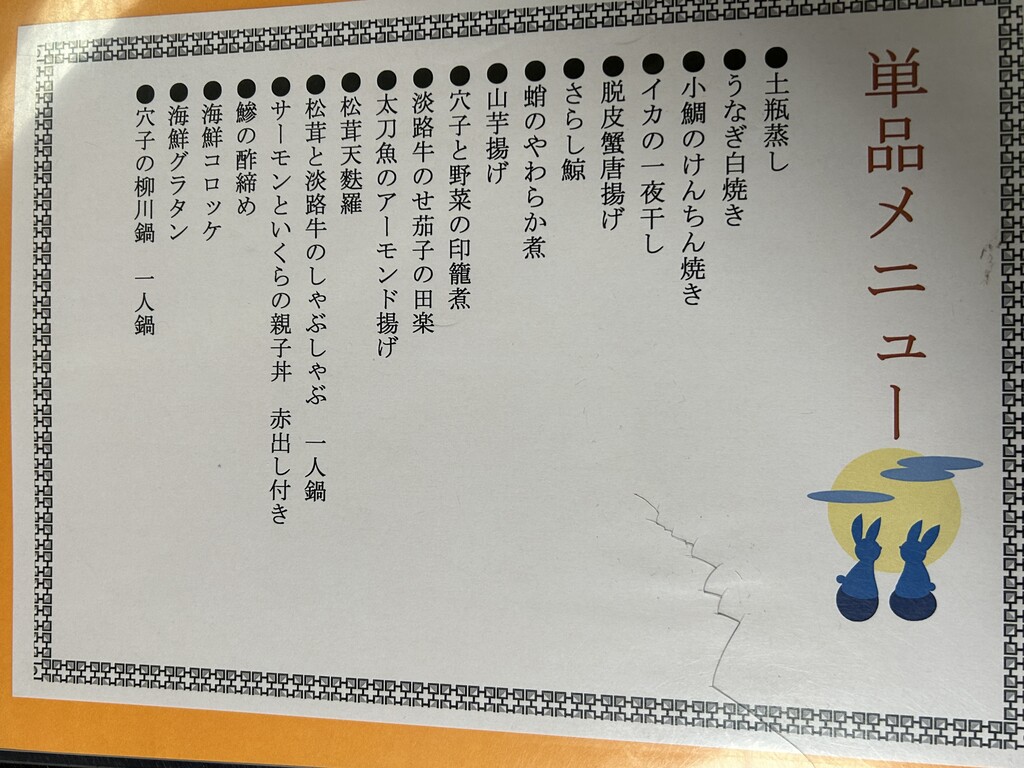 単品メニュー
●土瓶蒸し
●うなぎ白焼き
●小鯛のけんちん焼き
●イカの一夜干し
●脱皮蟹唐揚げ
●さらし鯨
●蛸のやわらか煮
●山芋揚げ
●穴子と野菜の印籠煮
●淡路牛のせ茄子の田楽
●太刀魚のアーモンド揚げ
●松茸天麩羅
●松茸と淡路牛のしゃぶしゃぶ　一人鍋
●サーモンといくらの親子丼　赤出し付き
●鯵の酢締め
●海鮮コロッケ
●海鮮グラタン
●穴子の柳川鍋　一人鍋